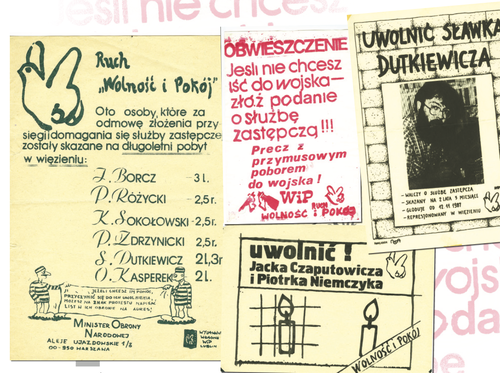 jeśli nie chcesz
Ruch
„Wolność i Pokój”
Oto osoby, które za
odmowę złożenia przy
sięgi domagania się służby zastępczej
zostały skazane na długoletni pobyt
w więzieniu:
J. BORCZ - 3 l.
P. RÓŻYCKI - 2,5r.
K. SOKOŁOWSKI - 2,5r.
P. ZDRZYNICKI - 2,5r.
S. DUTKIEWICZ 2l,3m
O. KASPEREK 2l.
JEŻELI CHCESZ IM POMÓC,
PRZYCZYNIĆ SIĘ DO ICH UWOLNIENIA,
MOŻESZ NA ZNAK PROTESTU NAPISAĆ
LIST W ICH OBRONIE NA ADRES:
MINISTER OBRONY
NARODOWEJ
ALEJE UJAZDOWSKIE 1/5
00-950 WARSZAWA
WIP
LUBLIN
OBWIESZCZENIE
Jeśli nie chcesz
iść do wojska—
złóż podanie
o służbę
zastępczą!!!
Precz z
przymusowym
poborem
do wojska!
WiP
RUCH
WOLNOŚĆ i POKÓJ
UWOLNIĆ SŁAWKA
DUTKIEWICZA
- WALCZY O SŁUŻBĘ ZASTĘPCZĄ
- SKAZANY NA 2 LATA 3 MIESIĄCE
- GŁODUJE OD 12 11 1987
- REPRESJONOWANY W WIĘZIENIU
uwolnić!
Jacka Czaputowicza
i Piotrka Niemczyka
WOLNOŚĆ i POKÓJ